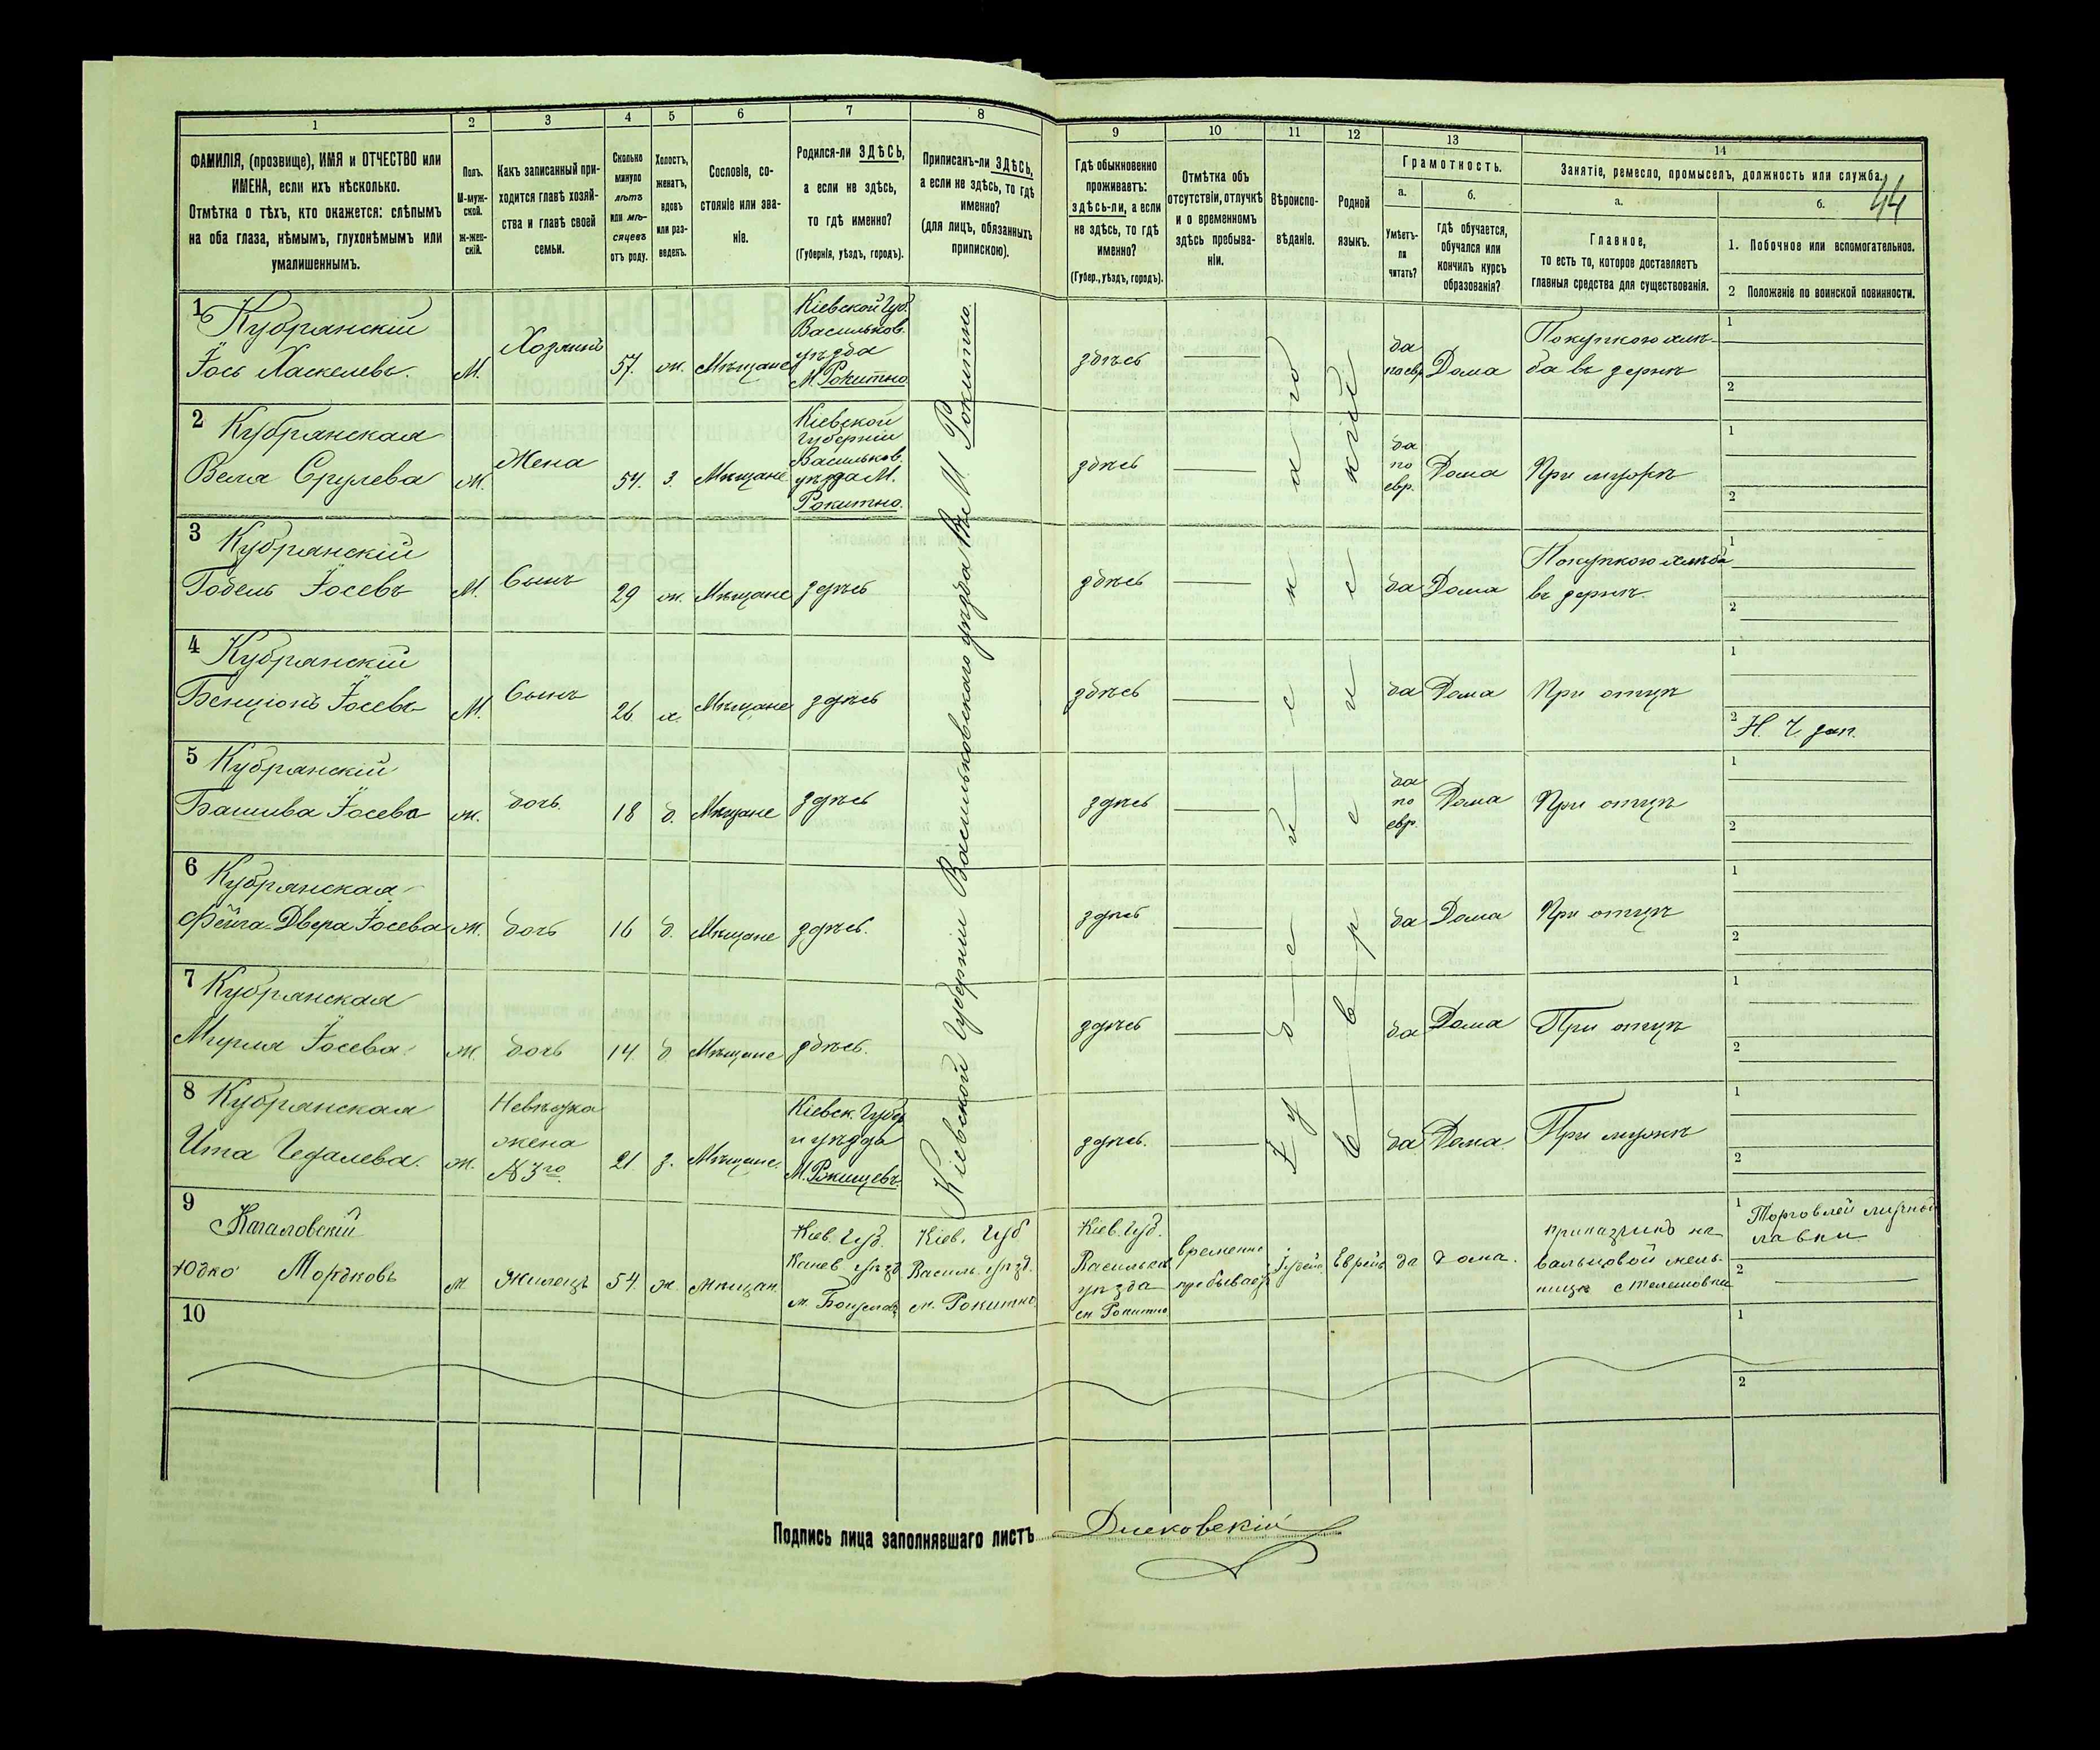 1
2
3
4
5
6
7
8
9
10
11
12
13
14
44
ФАМИЛІЯ, (прозвище), ИМЯ и ОТЧЕСТВО или
ИМЕНА, если ихъ нѣсколько.
Отмѣтка о тѣхъ, кто окажется: слѣпымъ
на оба глаза, нѣмымъ, глухонѣмымъ или
умалишеннымъ.
Полъ.
М-муж-
ской.
Ж-жен-
скій.
Какъ записанный при-
ходится главѣ хозяй-
ства и главѣ своей
семьи.
Сколько
минуло
лѣтъ
или мѣ-
сяцевъ
отъ роду.
Холостъ,
женатъ,
вдовъ
или раз-
веденъ.
Сословіе, со-
стояніе или зва-
ніе.
Родился-ли ЗДѢСЬ,
а если не здѣсь,
то гдѣ именно?
(Губернія, уѣздъ, городъ).
Приписанъ-ли ЗДѢСЬ,
а если не здѣсь, то гдѣ
именно?
(для лицъ, обязанныхъ
припискою).
Гдѣ обыкновенно
проживаетъ:
здѣсь-ли, а если
не здѣсь, то гдѣ
именно?
(Губер., уѣздъ, городъ).
Отмѣтка объ
отсутствіи, отлучкѣ
и о временномъ
здѣсь пребыва-
ніи.
Вѣроиспо-
вѣданіе.
Родной
языкъ.
Грамотность.
а.
Умѣетъ-
ли
читать?
б.
гдѣ обучается,
обучался или
кончилъ курсъ
образованія?
Занятіе, ремесло, промыселъ, должность или служба.
а.
Главное,
то есть то, которое доставляетъ
главныя средства для существованія.
б.
1. Побочное или вспомогательное.
2 Положеніе по воинской повинности.
1
Кубрянскій
Іось Хаскелевъ
М.
Хозяинъ
57.
ж.
Мѣщане
Кіевской Губ.
Васильков.
уѣзда
М. Рокитно
Кіевской Губерніи Васильковскаго уѣзда М. Рокитно.
здѣсь
Іудейскаго
Еврейскій
да
по евр.
Дома
Покупкою хлѣ-
ба въ зернѣ
1
2
2
Кубрянская
Вела Срулева
Ж.
Жена
54.
з.
Мѣщане
Кіевской
Губерніи
Васильков.
уѣзда М.
Рокитно.
здѣсь
да
по
евр.
Дома
При мужѣ
1
2
3
Кубрянскій
Гобель Іосевъ
М.
Сынъ
29
ж.
Мѣщане
здѣсь
здѣсь
да
Дома
Покупкою хлѣба
въ зернѣ.
1
2
4
Кубрянскій
Бенціонъ Іосевъ
М.
Сынъ
26
х.
Мѣщане
здѣсь
здѣсь
да
Дома
При отцѣ
1
2
Н. Ч. зап.
5
Кубрянскій
Башива Іосева
ж.
дочь.
18
д.
Мѣщане
здѣсь
здѣсь
да
по
евр.
Дома
При отцѣ
1
2
6
Кубрянская
Фейга-Двера Іосева
Ж.
дочь
16
д.
Мѣщане
здѣсь.
здѣсь
да
Дома
При отцѣ
1
2
7
Кубрянская
Мирля Іосева.
Ж.
дочь
14.
д.
Мѣщане
здѣсь.
здѣсь
да
Дома
При отцѣ
1
2
8
Кубрянская
Ита Гедалева.
Ж.
Невѣстка
жена
№ 3го.
21.
з.
Мѣщане.
Кіевск. Губер
и уѣзда
М. Ржищевъ.
здѣсь.
да
Дома.
При мужѣ
1
2
9
Кагаловскій
Юдко Мордковъ
М.
жилецъ
54.
ж.
мѣщан.
Кіев. Губ.
Канев. уѣзд
м. Богуслав
Кіев. Губ
Василь. уѣзд.
м. Рокитно.
Кіев. Губ.
Васильков
уѣзда
м. Рокитно
временно
пребывает
Іудейс.
Еврейс
да
дома.
приказчикъ на
вальцовой мель-
ницѣ с Телешовки
1
Торговлей мучной
лавки
2
10
1
2
Подпись лица заполнявшаго листъ